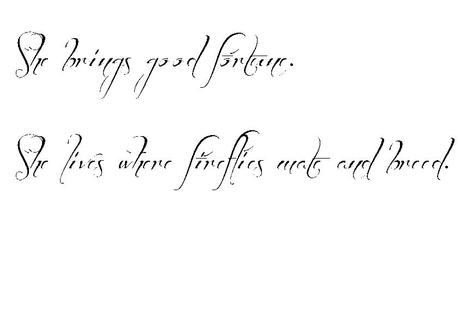 She brings good fortune.
She lives where fireflies mate and breed.